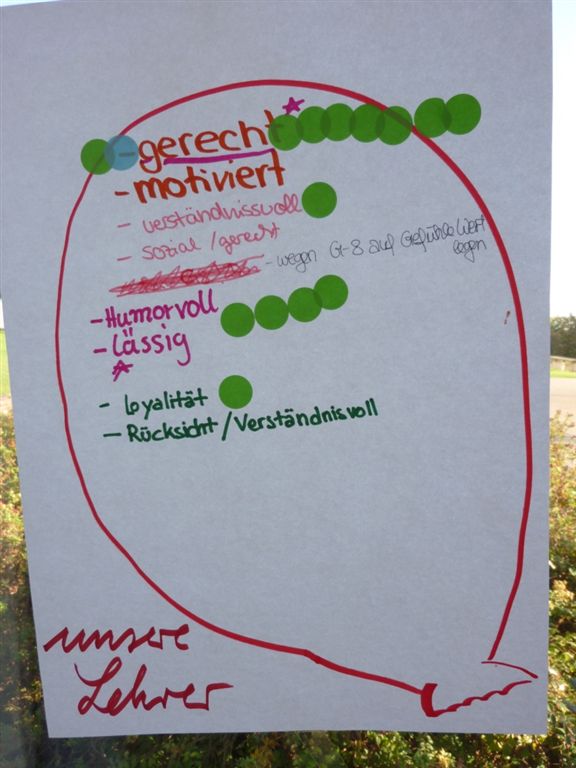 - gerecht
- motiviert
- verständnissvoll
- sozial / gerecht
- wegen G-8 auf Gefühle Wert legen
- Humorvoll
- Lässig
- loyalität
- Rücksicht / Verständnisvoll
unsere
Lehrer